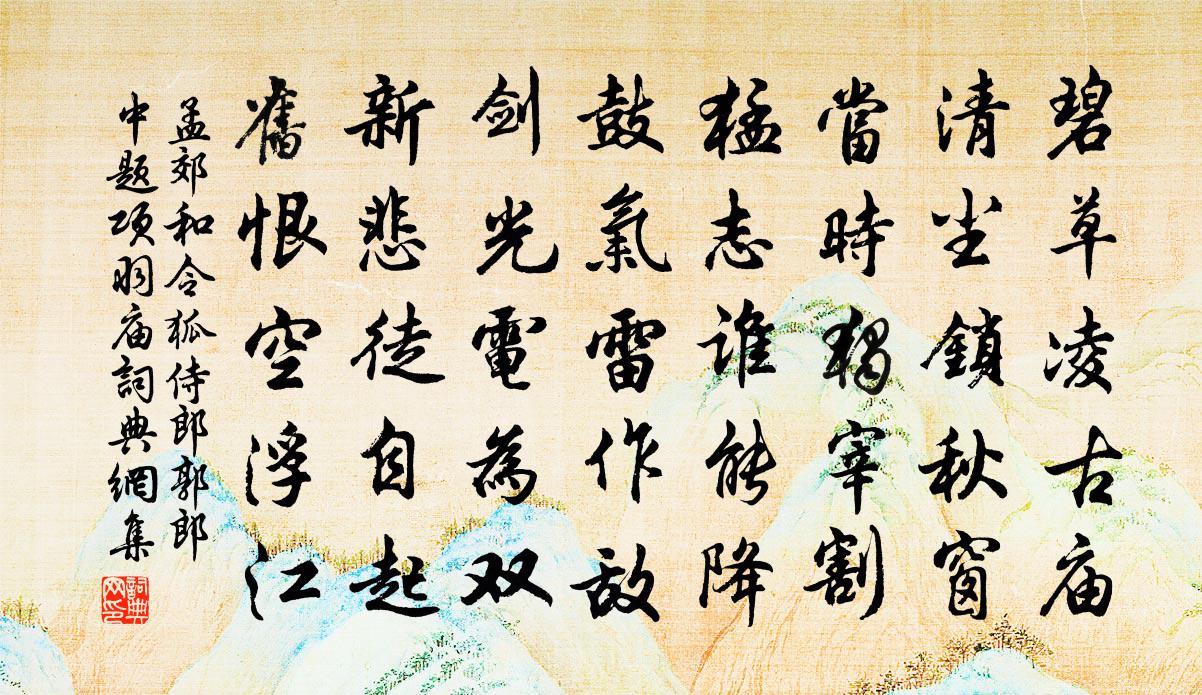 碧草凌古庙
清尘鎖秋窗
當時獨宰割
猛志谁能降
鼓氣雷作敌
剑光電為双
新悲徒自起
舊恨空浮江
孟郊和令狐侍郎郭郎
中题项羽庙詞典網集
詞典网印